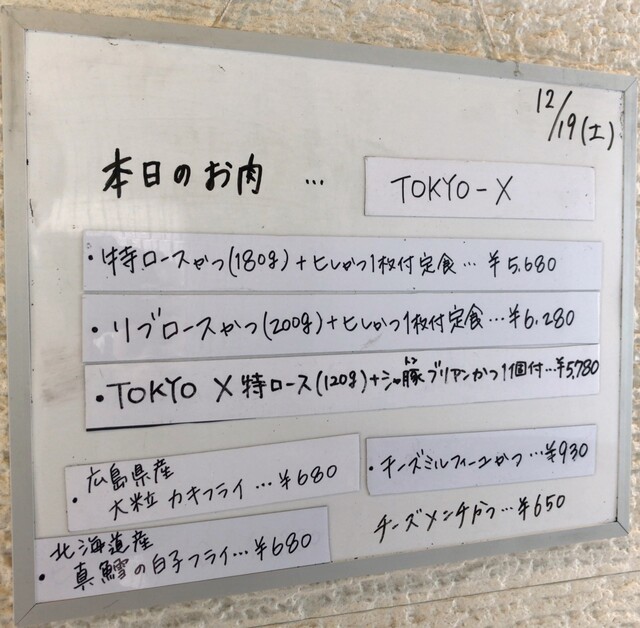 12/19(土)
本日のお肉 … TOKYO-X
・特ロースかつ(180g)+ヒレかつ1枚付定食… ¥5,680
・リブロースかつ(200g)+ヒレかつ1枚付定食…¥6,280
・TOKYO X 特ロース(120g)+シャ豚ブリアンかつ1個付…¥5,780
トン
・広島県産
大粒 カキフライ…¥680
・チーズミルフィーユかつ…¥930
チーズメンチかつ…¥650
・北海道産
真鱈の白子フライ…¥680